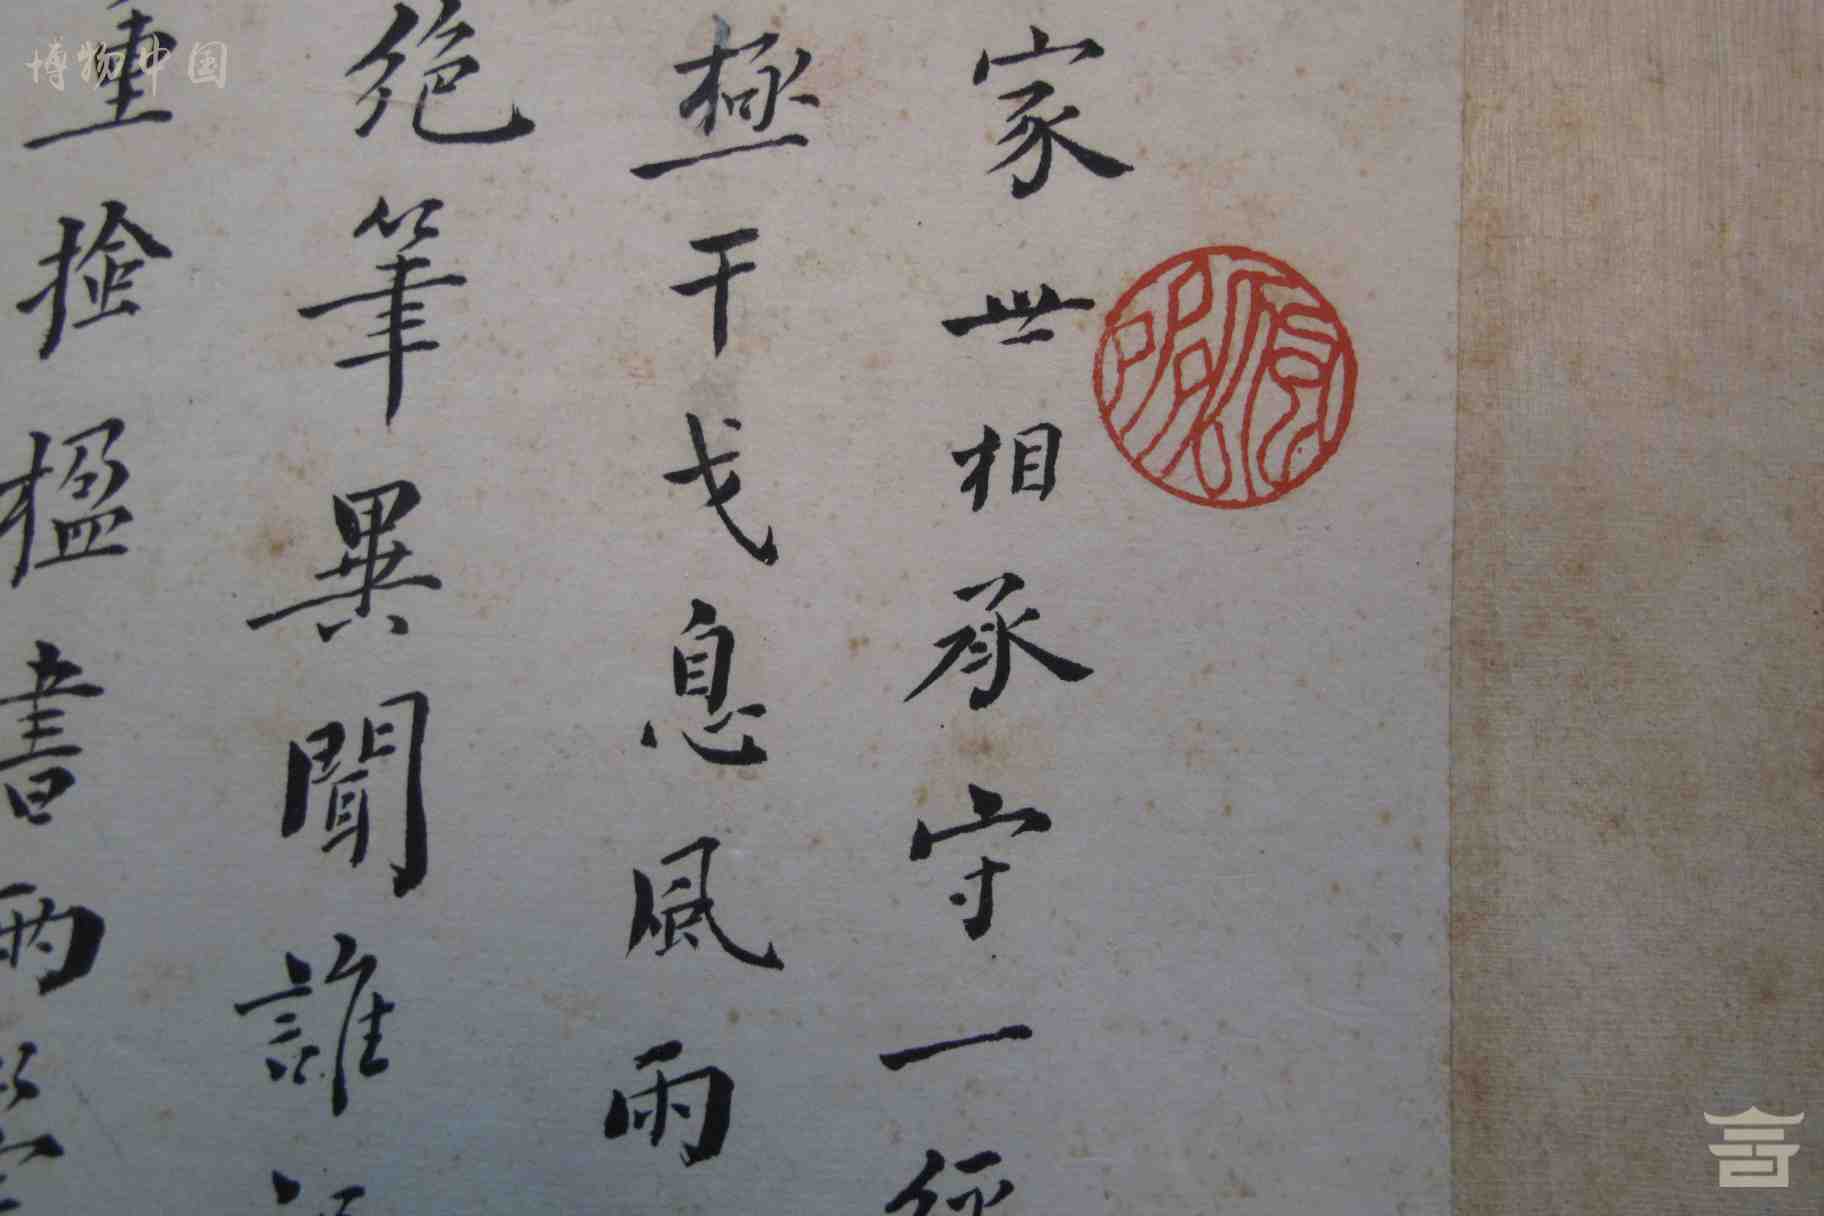 家世相承守一經
極干戈息風雨
絶筆異聞誰
重撿楹書兩
博物中国